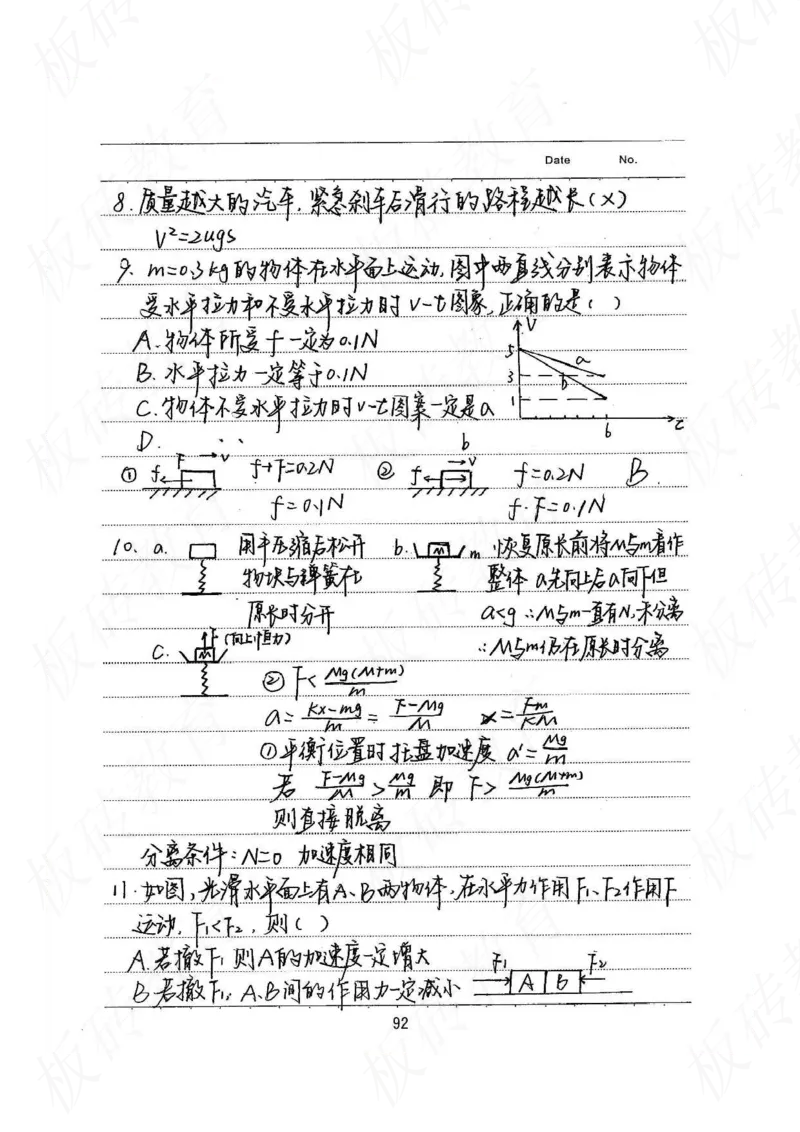 Date No.
8. 质量越大的汽车, 紧急刹车后滑行的路程越长 (×)
V²=2ugs
9. m=0.3kg的物体在水平面上运动, 图中两直线分别表示物体
受水平拉力和不受水平拉力时 v-t图象, 正确的是 ( )
A. 物体所受 f 一定为 0.1N
B. 水平拉力一定等于 0.1N
C. 物体不受水平拉力时v-t图案一定是a
D. ‥ b
V
5
3
1
a
b
6
t
① f F V f+F=0.2N ② f V f=0.2N B.
f=0.1N f-F=0.1N
10. a. 用手压缩后松开 b. M m 恢复原长前将M与m看作
物块与弹簧在 整体 a先向上后a向下但
原长时分开 a<g ∴M与m一直有N, 未分离
C. F (向上恒力) M ∴M与m仍在原长时分离
② F< Mg(M+m)/m
a= kx-mg/m = F-Mg/M x= Fm/KM
① 平衡位置时托盘加速度 a'= Mg/m
若 F-Mg/M > Mg/m 即 F> Mg(M+m)/m
则直接脱离
分离条件: N=0 加速度相同
11. 如图, 光滑水平面上有A、B两物体, 在水平力作用F₁、F₂作用下
运动, F₁<F₂, 则 ( )
A. 若撤F₁ 则A的加速度一定增大
B 若撤F₁, A、B间的作用力一定减小
F₁ A B F₂
92
板砖教育